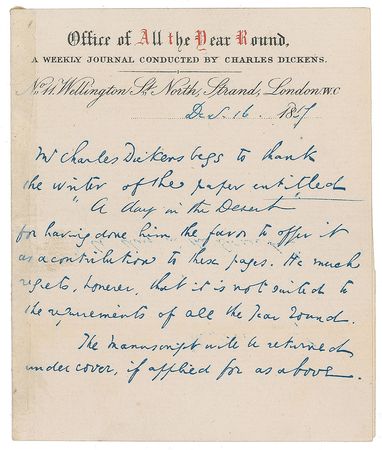 Office of All the Year Round,
A WEEKLY JOURNAL CONDUCTED BY CHARLES DICKENS.
No. 11. Wellington St. North, Strand, London W.C
Dec. 16.
Mr Charles Dickens begs to thank
the writer of the paper entitled
"A day in the Desert
for having done him the favor to offer it
as a contribution to these pages. He much
regrets, however, that it is not suited to
the requirements of all the Year round.
The manuscript will be returned
under cover, if applied for as above.